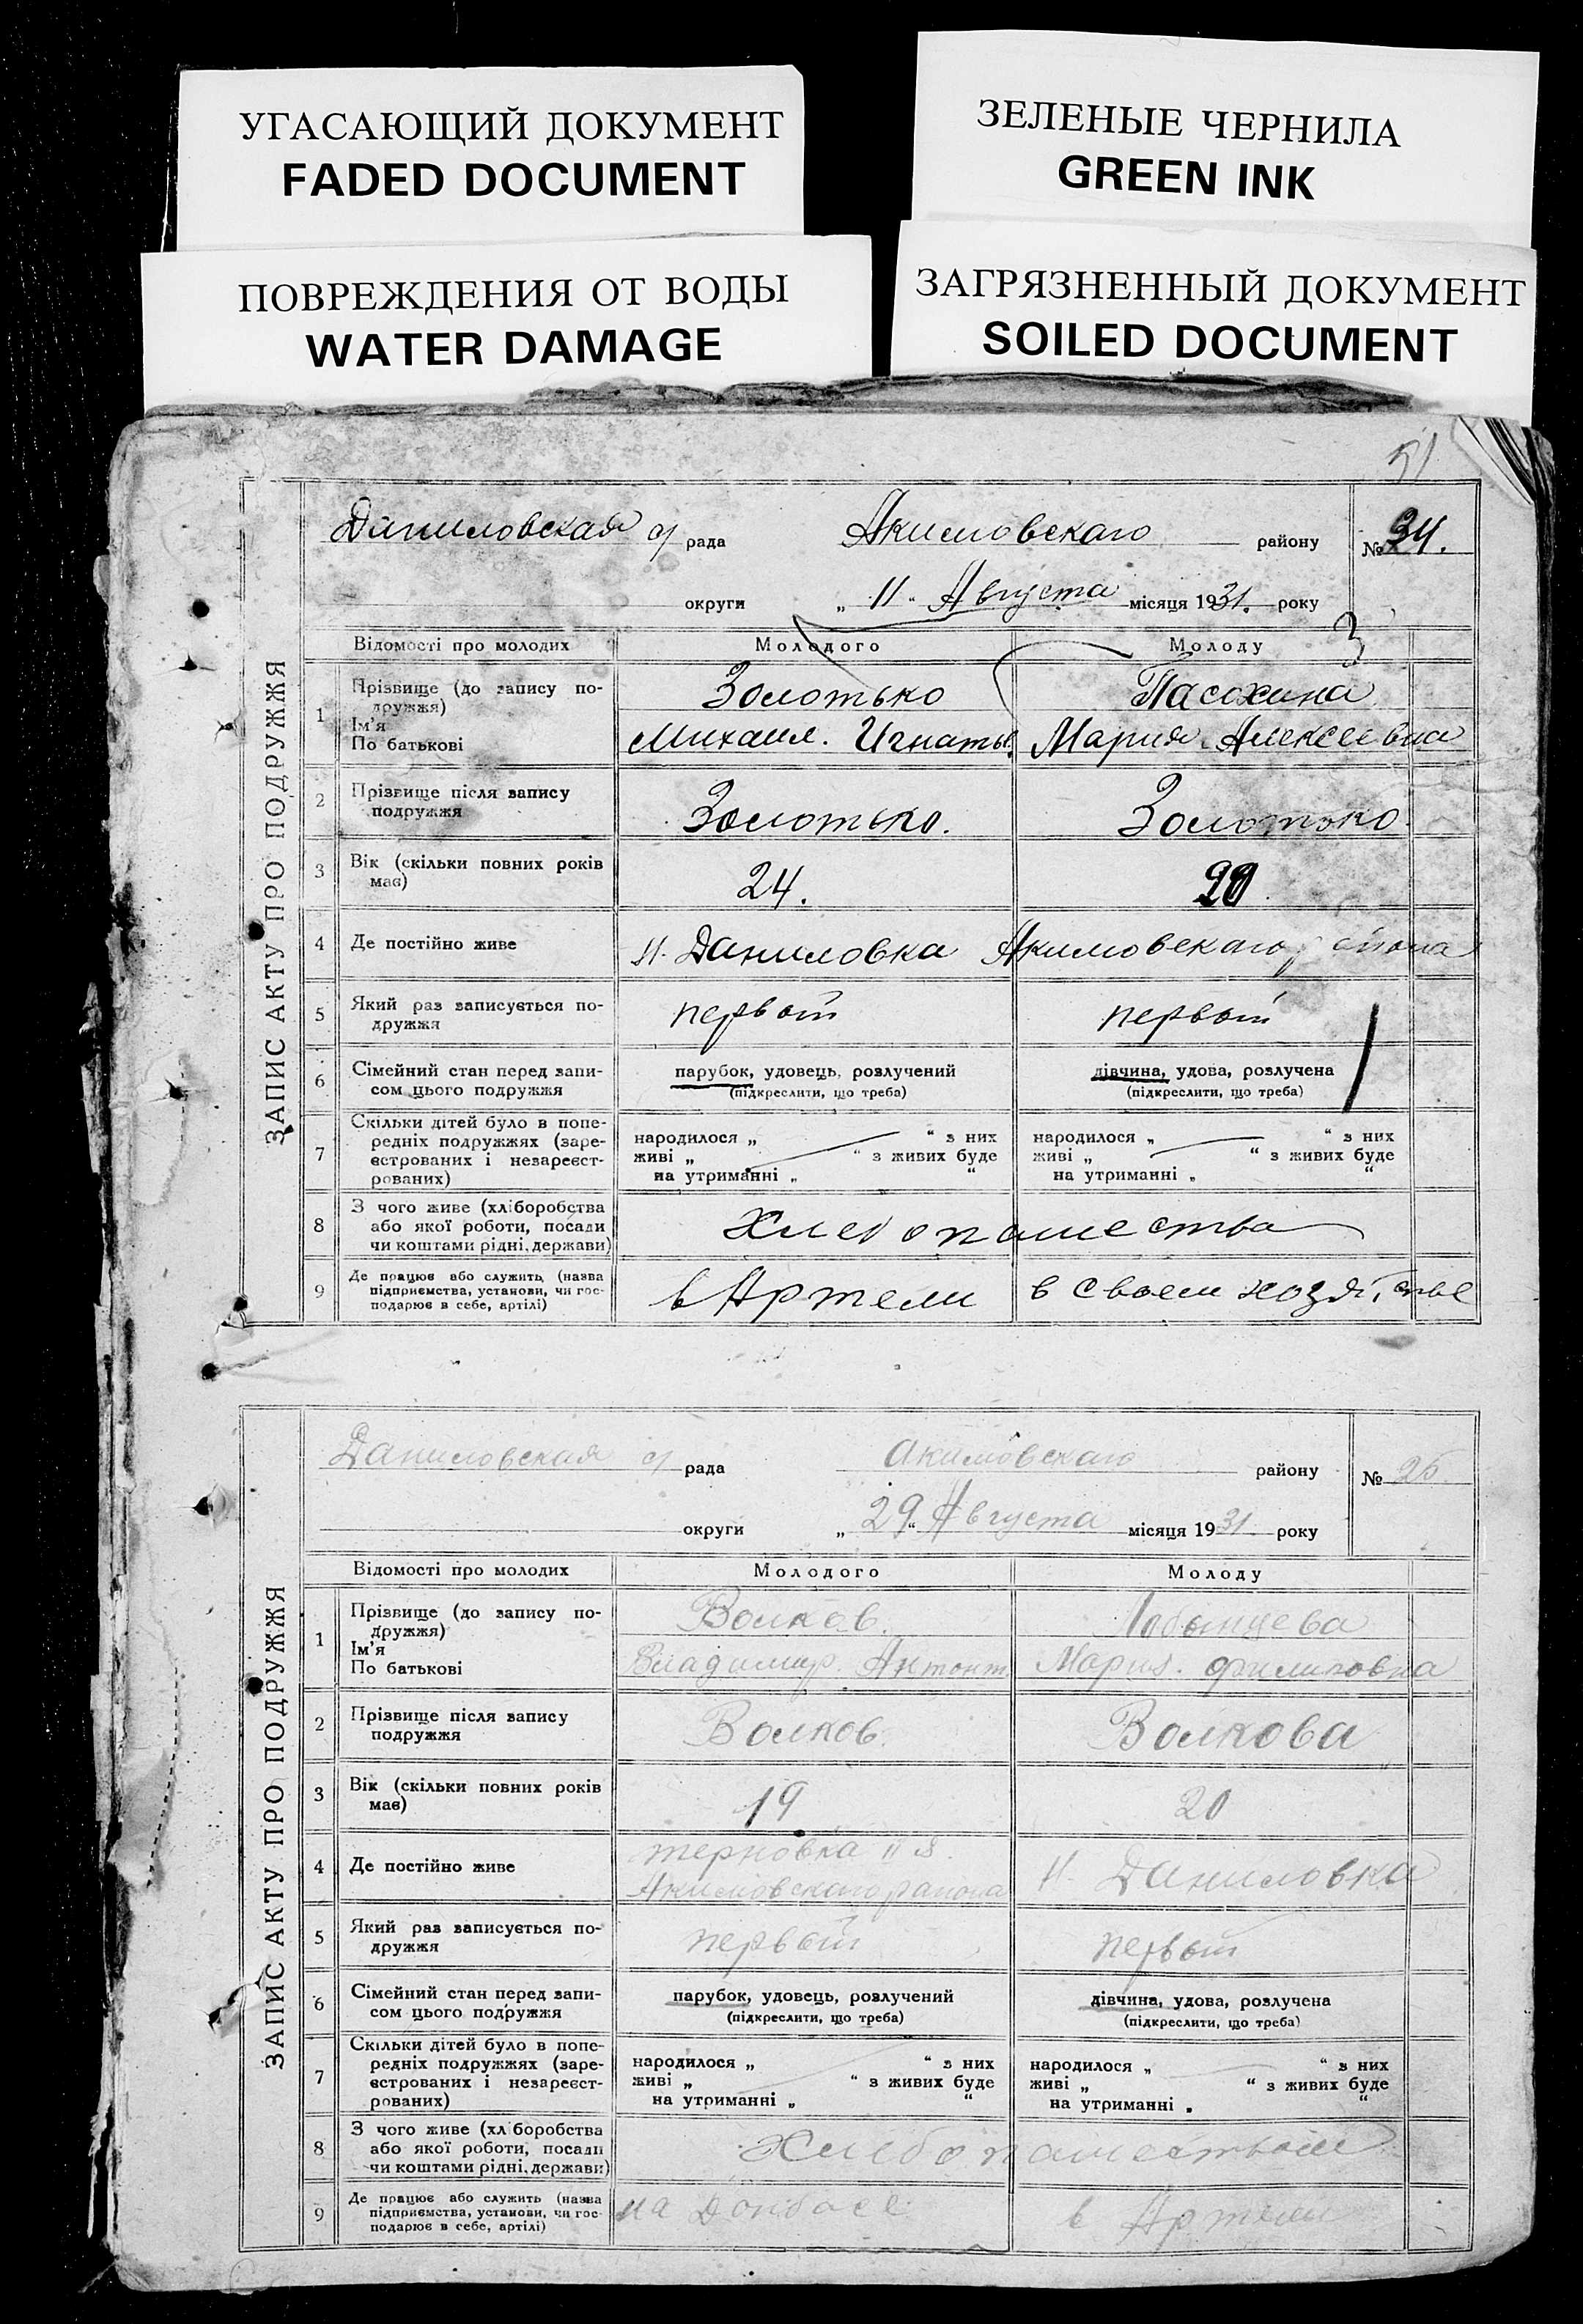 УГАСАЮЩИЙ ДОКУМЕНТ
FADED DOCUMENT
ЗЕЛЕНЫЕ ЧЕРНИЛА
GREEN INK
ПОВРЕЖДЕНИЯ ОТ ВОДЫ
WATER DAMAGE
ЗАГРЯЗНЕННЫЙ ДОКУМЕНТ
SOILED DOCUMENT
51
ЗАПИС АКТУ ПРО ПОДРУЖЖЯ
Даниловская с/ рада Акимовскаго району №
округи „ 11 “ Августа місяця 1931. року
3
Відомості про молодих Молодого Молоду
1 Прізвище (до запису по- Золотько Пасохина
дружжя)
Ім'я
По батькові Михаил. Игнатьев. Мария Алексеевна
2 Прізвище після запису
подружжя Золотько. Золотько.
3 Вік (скільки повних років
має) 24. 20.
4 Де постійно живе Н. Даниловка Акимовскаго района
5 Який раз записується по- первый первый
дружжя
6 Сімейний стан перед запи- парубок, удовець, розлучений дівчина, удова, розлучена
сом цього подружжя (підкреслити, що треба) (підкреслити, що треба)
Скільки дітей було в попе-
7 редніх подружжях (заре- народилося „ “ з них народилося „ “ з них
єстрованих і незареєст- живі „ “ з живих буде живі „ “ з живих буде
рованих) на утриманні „ “ на утриманні „ “
З чого живе (хліборобства
8 або якої роботи, посади Хлебопашества
чи коштами рідні, держави)
Де працює або служить, (назва
9 підприємства, установи, чи гос- в Артели в своем хозяйстве
подарює в себе, артілі)
ЗАПИС АКТУ ПРО ПОДРУЖЖЯ
Даниловская с/ рада Акимовскаго району №
округи „ 29 “ Августа місяця 1931. року
Відомості про молодих Молодого Молоду
1 Прізвище (до запису по- Волков.
дружжя)
Ім'я
По батькові Владимир. Мария. Филиповна
2 Прізвище після запису
подружжя Волков. Волкова
3 Вік (скільки повних років
має) 19 20
терновка
4 Де постійно живе Н. Даниловка
Акимовскаго района
5 Який раз записується по- первый первый
дружжя
6 Сімейний стан перед запи- парубок, удовець, розлучений дівчина, удова, розлучена
сом цього подружжя (підкреслити, що треба) (підкреслити, що треба)
Скільки дітей було в попе-
7 редніх подружжях (заре- народилося „ “ з них народилося „ “ з них
єстрованих і незареєст- живі „ “ з живих буде живі „ “ з живих буде
рованих) на утриманні „ “ на утриманні „ “
З чого живе (хліборобства
8 або якої роботи, посади Хлебопашеством
чи коштами рідні, держави)
Де працює або служить (назва
9 підприємства, установи, чи гос- на Донбасе в Артели
подарює в себе, артілі)